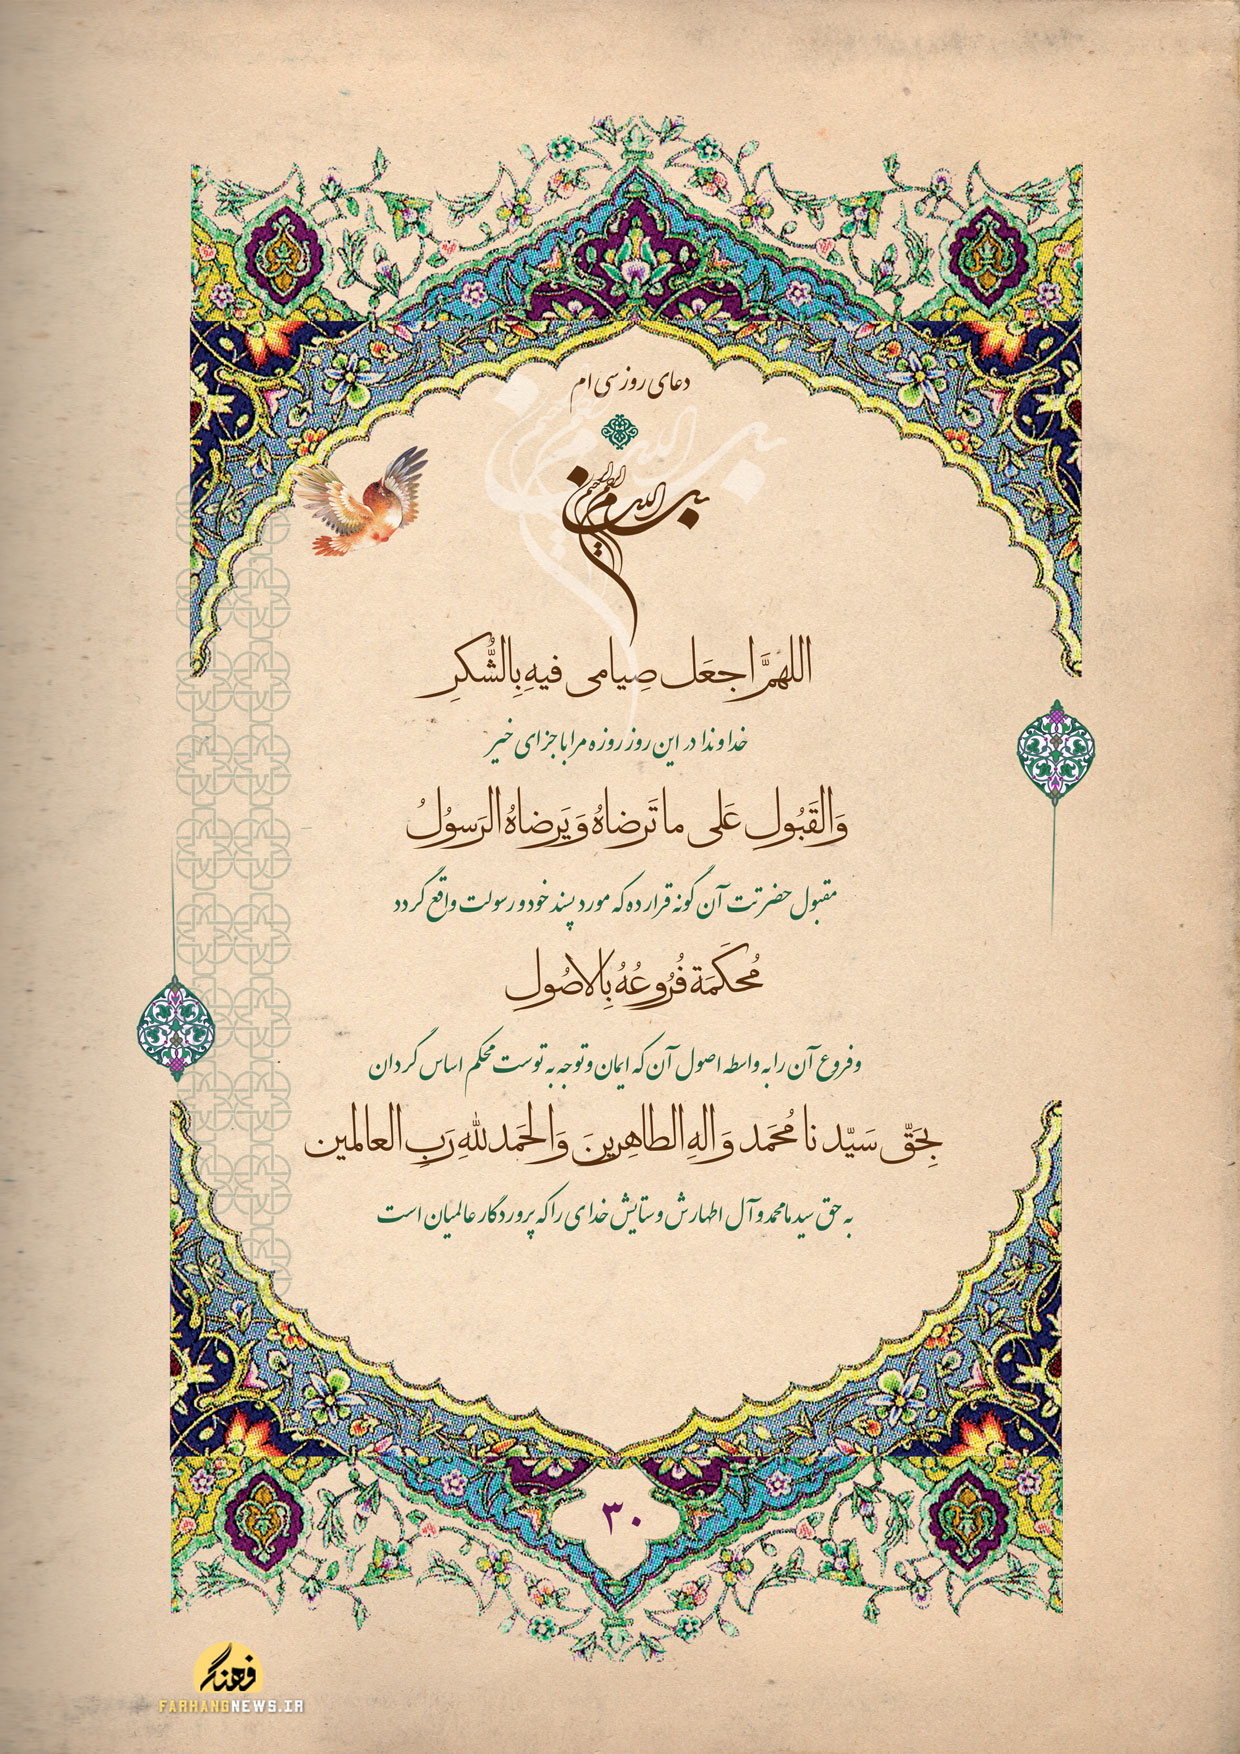 دعای روز سی ام
بسم الله الرحمن الرحیم
اللهمَّ اجعَل صِیامی فیهِ بِالشُّکرِ
خداوندا در این روز روزه مرا با جزای خیر
وَالقَبُول عَلی ما تَرضاهُ وَ یَرضاهُ الرَسوُلُ
مقبول حضرتت آن گونه قرار ده که مورد پسند خود و رسولت واقع گردد
مُحکَمَة فُرُوعُهُ بِالاصُولِ
و فروع آن را به واسطه اصول آن که ایمان و توجه به توست محکم اساس گردان
بِحَقّ سَیّدنا مُحَمَد وَ الهِ الطاهِرینَ وَ الحَمد للهِ رَبِ العالمین
به حق سید ما محمد و آل اطهارش و ستایش خدای را که پروردگار عالمیان است
۳۰
فرهنگ
FARHANGNEWS.IR